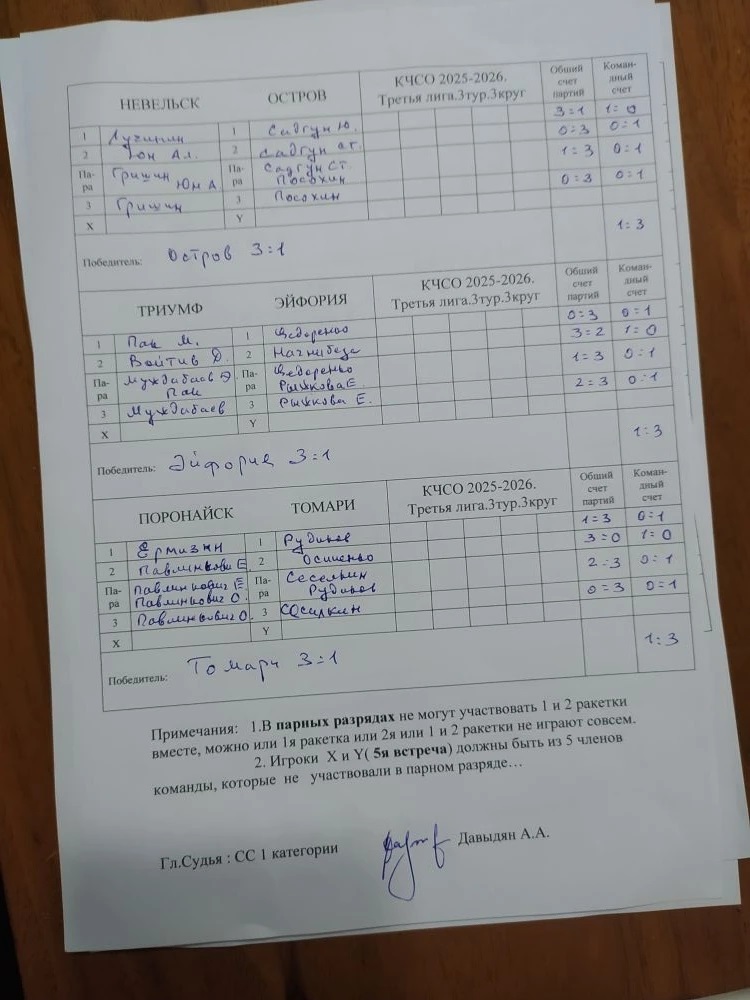 НЕВЕЛЬСК ОСТРОВ КЧСО 2025-2026. Третья лига.3тур.3круг Общий счет партий Командный счет
1 Лучинин 1 Садгун Ю. 3=1 1=0
2 Юн Ал. 2 Садгун 0=3 0=1
Па-ра Гришин Юн А Па-ра Садгун Ст Посохин 1=3 0=1
3 Гришин 3 Посохин 0=3 0=1
X Y
1=3
Победитель: Остров 3=1
ТРИУМФ ЭЙФОРИЯ КЧСО 2025-2026. Третья лига.3тур.3круг Общий счет партий Коман-дный счет
1 Пак М. 1 Федоренко 0=3 0=1
2 Войтив Д. 2 Нагнибеда 3=2 1=0
Па-ра Муждабаев Э Пак Па-ра Федоренко Рыжкова Е. 1=3 0=1
3 Муждабаев 3 Рыжкова Е. 2=3 0=1
X Y
1=3
Победитель: Эйфория 3=1
ПОРОНАЙСК ТОМАРИ КЧСО 2025-2026. Третья лига.3тур.3круг Общий счет партий Коман-дный счет
1 Ермизин 1 Рудиков 1=3 0=1
2 Е 2 Осипенко 3=0 1=0
Па-ра Павлинкович Е Павлинкович О. Па-ра Рудиков 2=3 0=1
3 Павлинкович О. 3 0=3 0=1
X Y
1=3
Победитель: Томари 3=1
Примечания: 1.В парных разрядах не могут участвовать 1 и 2 ракетки
вместе, можно или 1я ракетка или 2я или 1 и 2 ракетки не играют совсем.
2. Игроки X и Y( 5я встреча) должны быть из 5 членов
команды, которые не участвовали в парном разряде…
Гл.Судья : СС 1 категории Давыдян А.А.